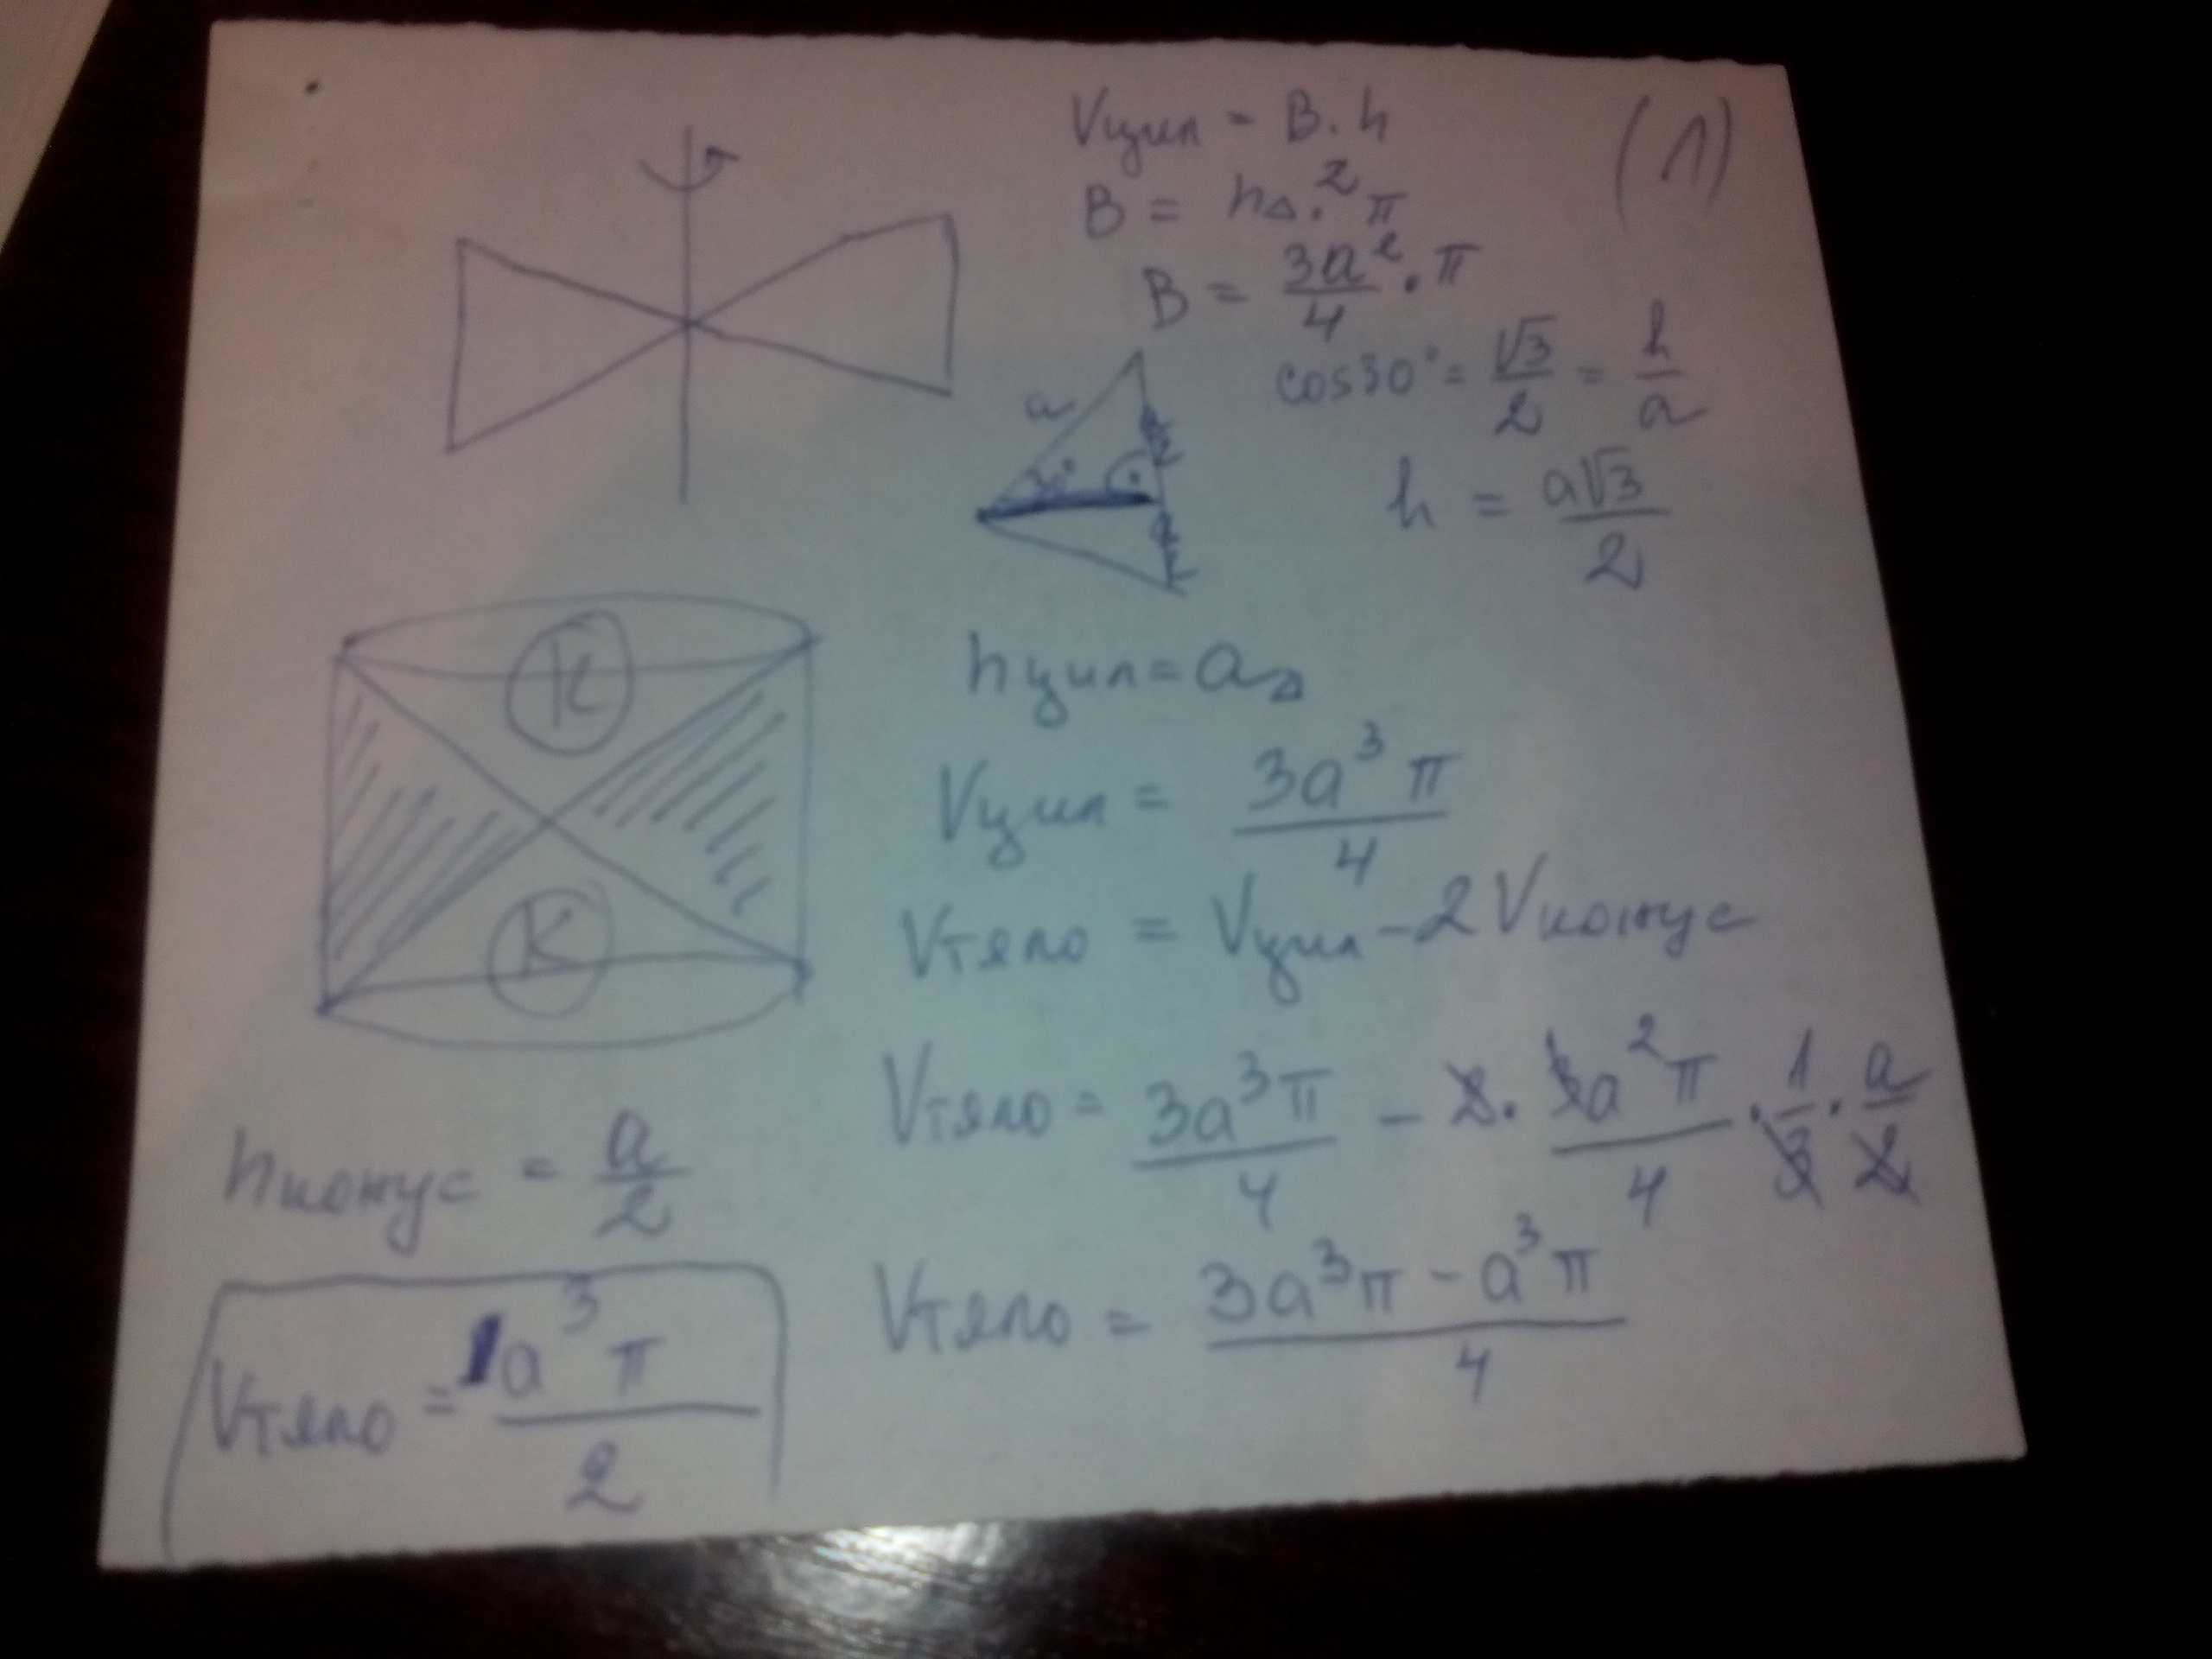 (1)
Vцил = B.h
B = h△.² π
B = 3a²/4 . π
cos30° = √3/2 = h/a
a
30°
h = a√3/2
K
K
hцил = a△
Vцил = 3a³π/4
Vтяло = Vцил - 2Vконус
Vтяло = 3a³π/4 - 2. 3a²π/4 . 1/3 . a/2
hконус = a/2
Vтяло = 3a³π - a³π/4
Vтяло = 1a³π/2